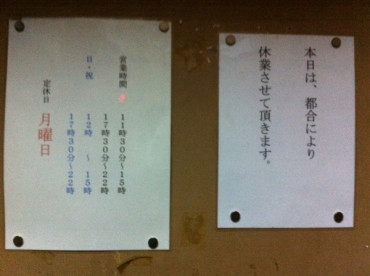 本日は、都合により
休業させて頂きます。
営業時間 11時30分~15時
17時30分~22時
日・祝 12時 ~ 15時
17時30分~22時
定休日 月曜日